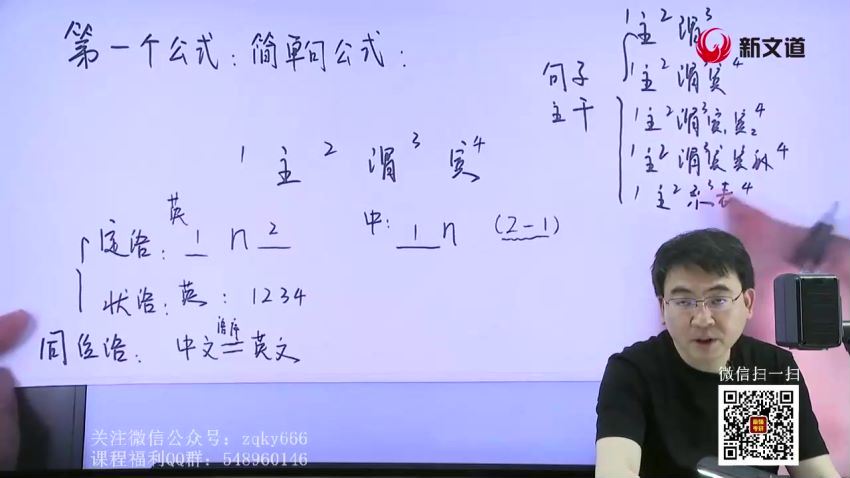 第一个公式：简单句公式：
1 主 2 谓 3 宾 4
英
定语：1 n 2
中：1 n (2-1)
状语：英：1234
同位语：中文 语序 = 英文
句子
主干
1 主 2 谓 3
1 主 2 谓 宾 4
1 主 2 谓 3 宾1 宾2 4
1 主 2 谓 3 宾 宾补 4
1 主 2 系 3 表 4
新文道
微信扫一扫
关注微信公众号：zqky666
课程福利QQ群：548960146